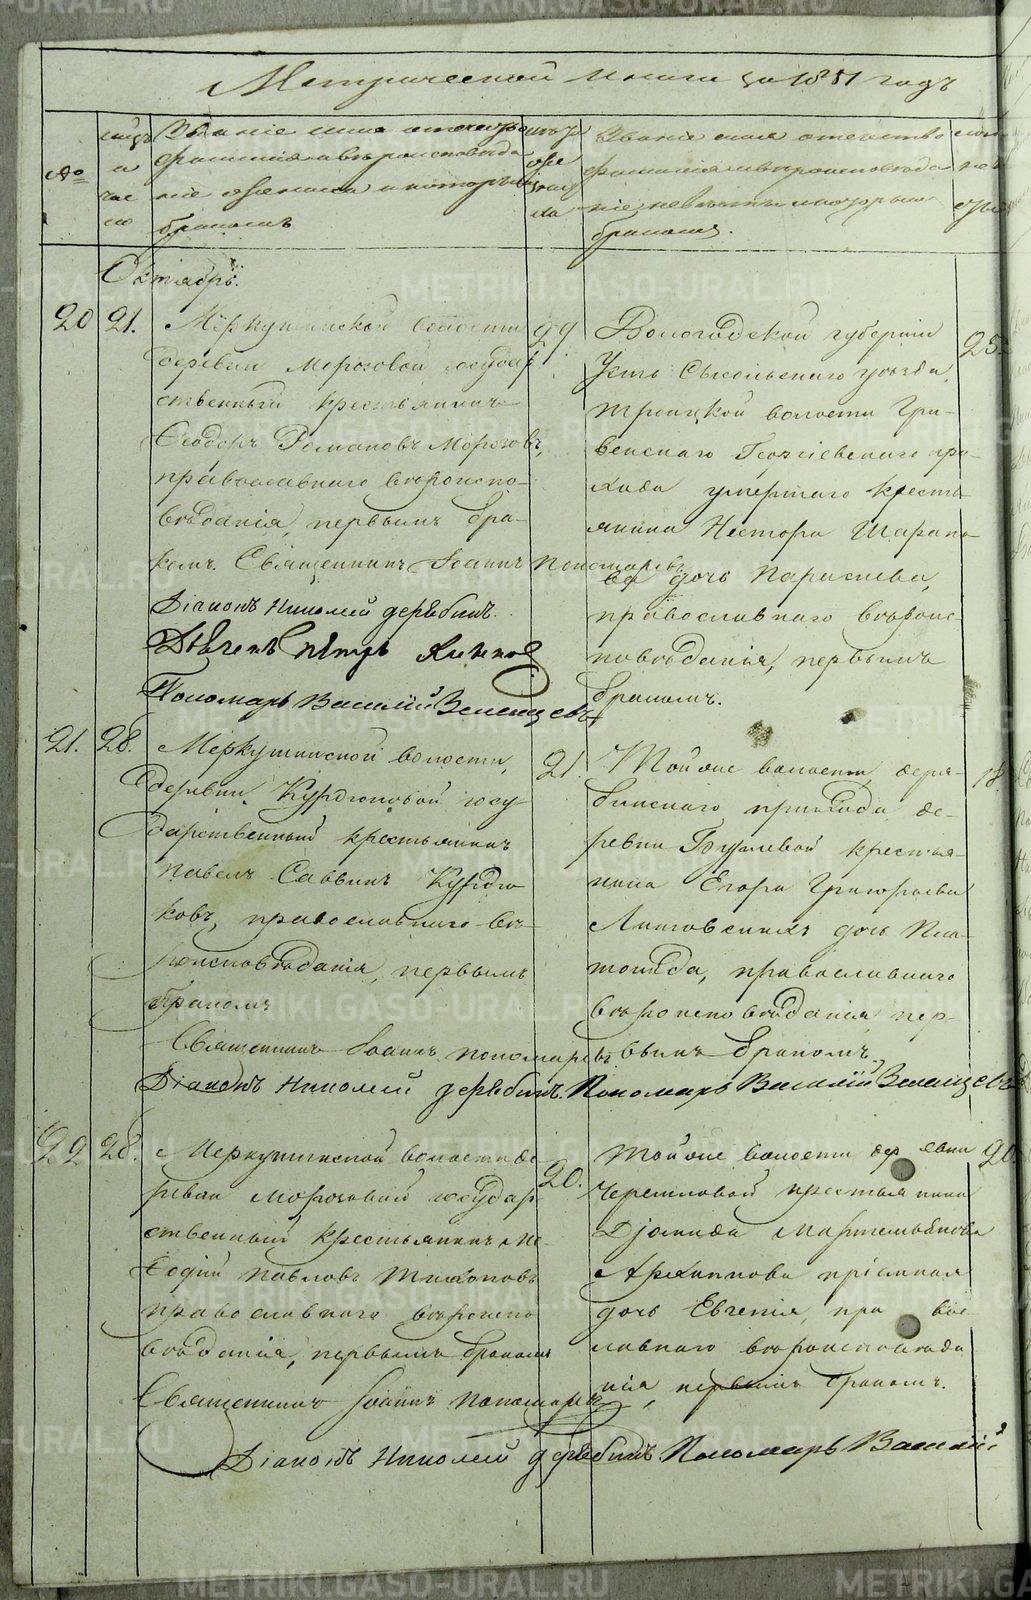 Метрической книги за 18 1 годъ
№
мѣсяцъ
и
чис
ло
Званіе имя отечество
фамилія и вѣроисповѣда
ніе жениха и которымъ
бракомъ
лѣта
жениха
Званіе имя отечество
фамилія и вѣроисповѣда
ніе невѣсты и которымъ
бракомъ.
Октябрь.
20 21.
Меркушинской волости
деревни Морозовой государ
ственный крестьянинъ
Ѳеодоръ Романовъ Морозовъ,
православнаго вѣроиспо-
вѣданія, первымъ бра-
комъ. Священникъ Іоаннъ Пономаревъ
Діаконъ Николай Дерябинъ.
Дьячекъ Петръ
Пономарь Василій Зеленцевъ
Вологодской губерніи
Усть Сысольскаго уѣзда,
Троицкой волости Гри-
венскаго Георгіевскаго при-
хода умершаго кресть-
янина Нестора Шарапо-
ва дочь Параскева,
православнаго вѣроис-
повѣданія, первымъ
бракомъ.
25.
21. 28.
Меркушинской волости,
деревни Курдюковой госу
дарственный крестьянинъ
Павелъ Саввинъ Курдю
ковъ, православнаго вѣ-
роисповѣданія, первымъ
бракомъ
Священникъ Іоаннъ Пономаревъ
Діаконъ Николай Дерябинъ. Пономарь Василій Зеленцевъ
21
Той же волости, деря-
бинскаго прихода де-
ревни крестья-
нина Егора Григорьева
Литовскихъ дочь Пла-
тонида, православнаго
вѣроисповѣданія пер-
вымъ бракомъ.
18.
22 28.
Меркушинской волости де
ревни Морозовой государ
ственный крестьянинъ Ме-
ѳодій Павловъ Тихоновъ
православнаго вѣроиспо
вѣданія, первымъ бракомъ
Священникъ Іоаннъ Пономаревъ
Діаконъ Николай Дерябинъ. Пономарь Василій
20.
Той же волости деревни
Черемховой крестьянина
Діомида Мартемьянова
Архипова пріемная
дочь Евгенія, пра вос
лавнаго вѣроисповѣда
нія, первымъ бракомъ.
20.
METRIKI.GASO-URAL.RU